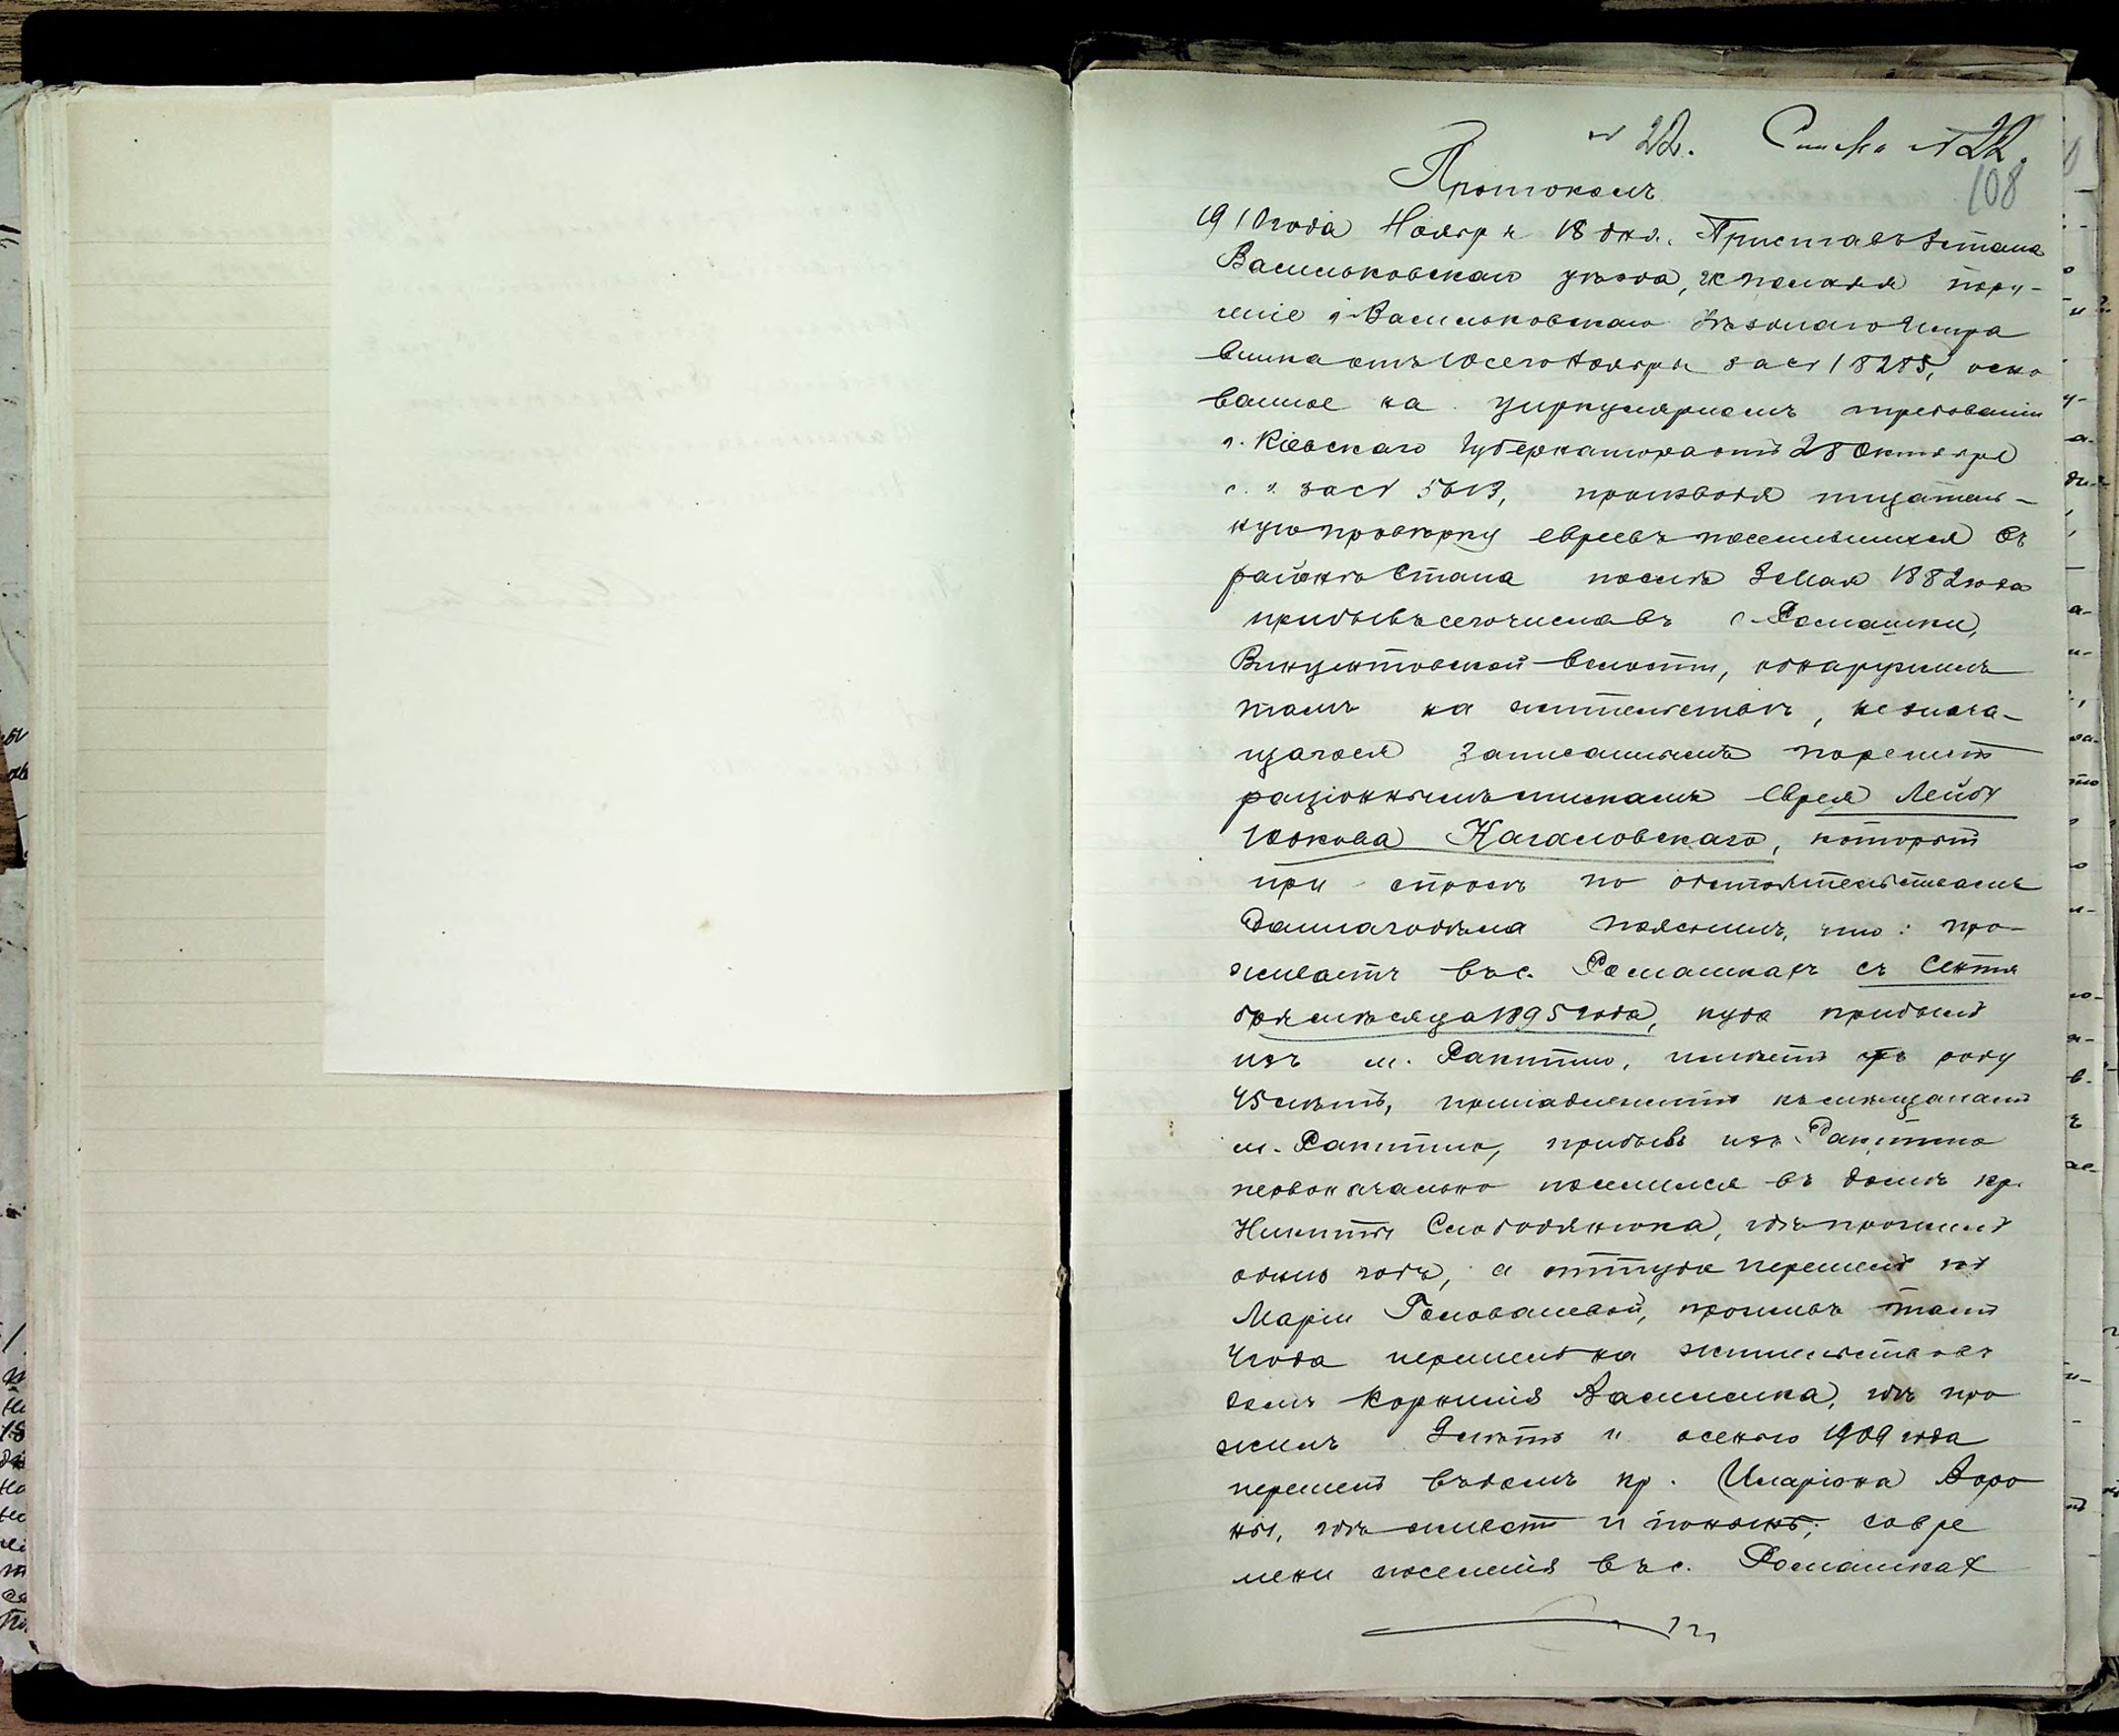 № 22. Списка № 22.
108
Протоколъ
1910 года Ноября 18 дня. Приставъ стана
Васильковскаго уѣзда, исполняя пору-
ченіе г. Васильковскаго Уѣзднаго Исправ
ника отъ 10 сего Ноября за № 18285, осно
ванное на циркулярномъ требованіи
г. Кіевскаго Губернатора отъ 28 Октября
с. г. за №, производя тщатель-
ную провѣрку евреевъ поселившихся въ
районѣ стана послѣ 3 Мая 1882 года
прибывъ сего числа въ с. Ромашки,
Винцентовской волости, обнаружилъ
тамъ на жительствѣ, не знача-
щагося записаннымъ по регист
раціоннымъ спискамъ еврея Лейбу
Іоскова Кагаловскаго, который
при спросѣ по обстоятельствамъ
даннаго дѣла пояснилъ, что: про-
живаетъ въ с. Ромашкахъ съ Сентя
бря мѣсяца 1895 года, куда прибылъ
изъ м. Ракитно, имѣетъ отъ роду
45 лѣтъ, принадлежитъ къ мѣщанамъ
м. Ракитно, прибывъ изъ Ракитна
первоначально поселился въ домѣ кр.
Никиты Слободянюка, гдѣ прожилъ
одинъ годъ, а оттуда перешелъ къ
Маріи Головачевой, проживъ тамъ
4 года перешелъ на жительство въ
домъ Корнилія Василенка, гдѣ про
жилъ 9 лѣтъ и осенью 1909 года
перешелъ въ домъ кр. Иларіона Воро
ны, гдѣ живетъ и понынѣ; со вре
мени поселенія въ с. Ромашкахъ